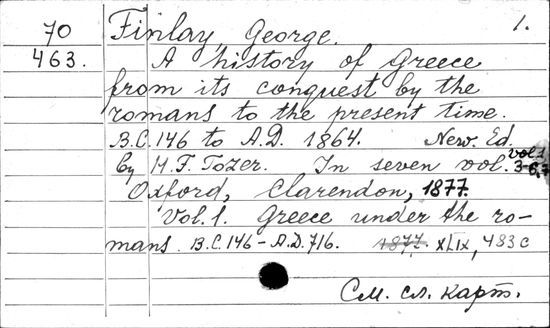 70 Finlay, George. 1.
463. A history of Greece
from its conquest by the
romans to the present time.
B.C. 146 to A.D. 1864. New. Ed.
by H. F. Tozer. In seven vol. vol 1
3-6,7
Oxford, Clarendon, 1877.
Vol. 1. Greece under the ro-
mans. B.C. 146 - A.D. 716. 1877. XLIX, 483 c
См. сл. карт.